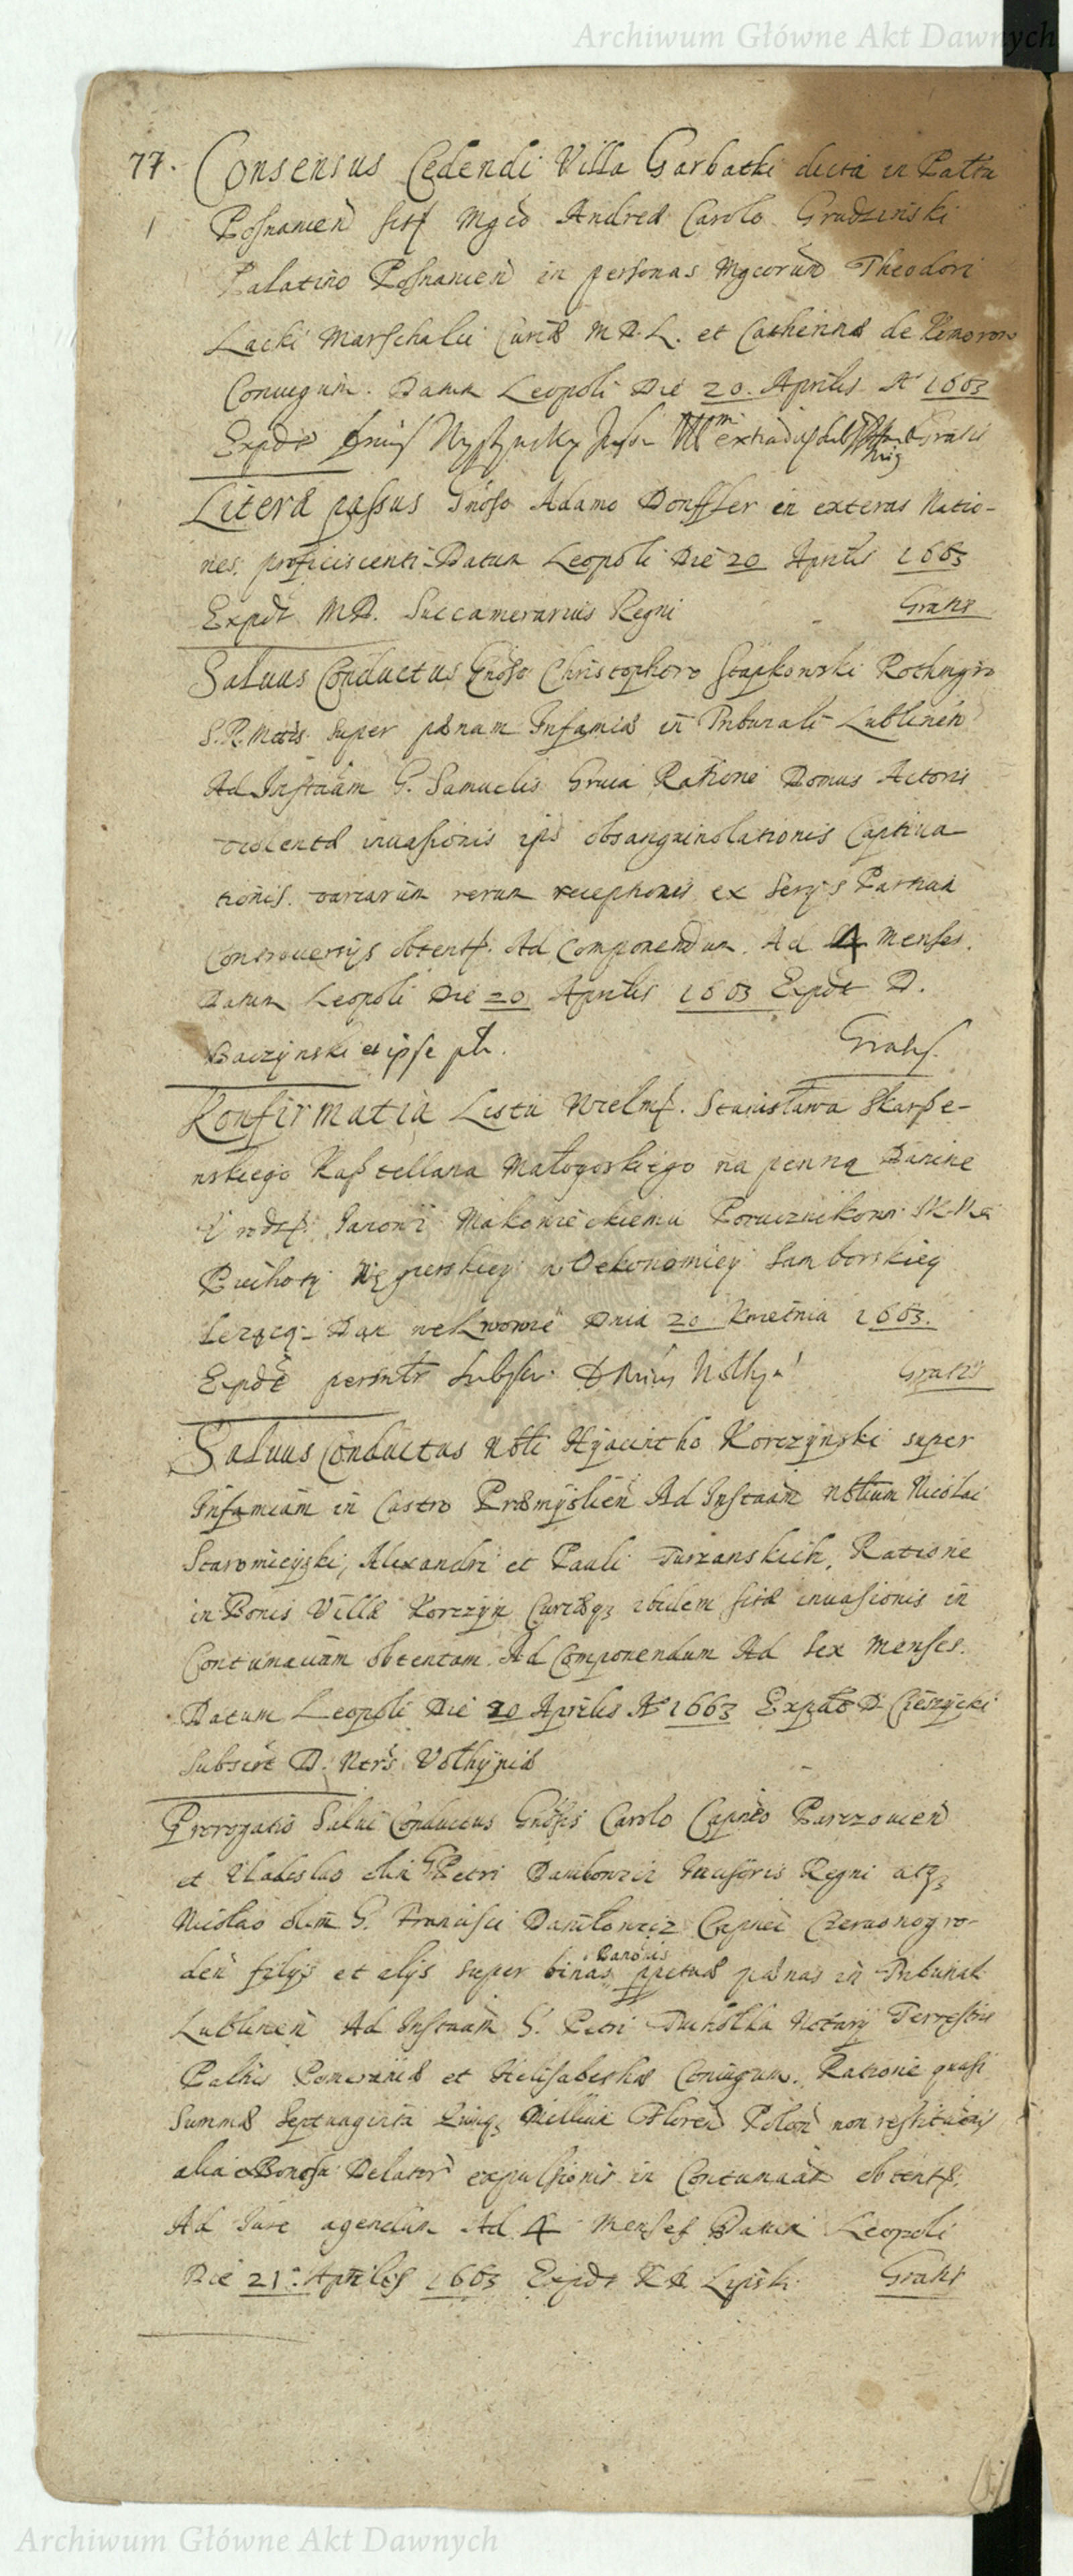 Archiwum Główne Akt Dawnych
77. Consensus Cedendi Villa Garbatki dicta in Pattu
Posnanien sit Mgco Andrea Carolo Grudzinski
Palatino Posnanien in personas Mgcorum Theodori
Lacki Marschalci Curiæ M.D.L. et Catherinæ de
Coniugum. Datum Leopoli Die 20. Aprilis Ao 1663
Expdt Gratis
Literæ passus Gnoso Adamo Donffler in exteras Natio-
nes proficiscenti Datum Leopoli Die 20 Aprilis 1663
Expdt M.D. Succamerarius Regni Gratis
Saluus Conductus Gnoso Christophoro Stapkowski Rothmgro
S.R.Mttis super pænam Infamiæ in Tribunali Lublinen
Ad Instaam G. Samuelis Gruia Ratione Domus Actoris
violentæ inuasionis ips obsanguinolationis Captiua
tionis variarum rerum receptionis ex Serys Partium
Controuersijs obtent. Ad Componendum. Ad 4 Menses.
Datum Leopoli Die 20 Aprilis 1663 Expdt D.
Baczynski et ipse pt. Gratis
Konfirmatia Listu Wielmo. Stanisława Skarsze-
nskiego Kasztellana Małogoskiego na pewną Daninę
Urodz. Janowi Makowieckiemu Porucznikowi JKMci
Piechoty Węgierskiey w Oekonomiey Samborskiey
Lezącą Dan we Lwowie Dnia 20 Kwietnia 1663.
Expdt Gratis
Saluus Conductus Nobli Hyacintho Korczynski super
Infamiam in Castro Præmyslien Ad Instaam Nobilium Nicolai
Staromieyski, Alexandri et Pauli Turzanskich, Ratione
in Bonis Villæ Korczyn Curiæq3 ibidem sitæ inuasionis in
Contumatiam obtentam. Ad Componendum Ad Sex Menses.
Datum Leopoli Die 20 Aprilis Ao 1663 Expdt D. Cieszycki
Subscrt D. Ntrs Volhyniæ
Prorogatio Salui Conductus Gnosis Carolo Capneo Parczouien
et Vladislao olim G Petri Danilowicz Incisoris Regni atq3
Nicolao olim G. Francisci Daniłowicz Capnei Czeruonogro-
den filijs et alijs super binas Banonis ppetuæ pænas in Tribunal
Lublinen Ad Instaam G. Petri Tuchołka Notarij Terrestris
Palttis Pomeraniæ et Helisabethæ Coniugum. Ratione quasi
Summæ Septuaginta Quinq3 Millium Floren Polon non restitutionis
alia Bonosu Delator expulsionis in Contumaciam obtent.
Ad Jure agendum Ad 4 Menses Datum Leopoli
Die 21. Aprilis 1663 Expdt RD Lipski Gratis
Archiwum Główne Akt Dawnych